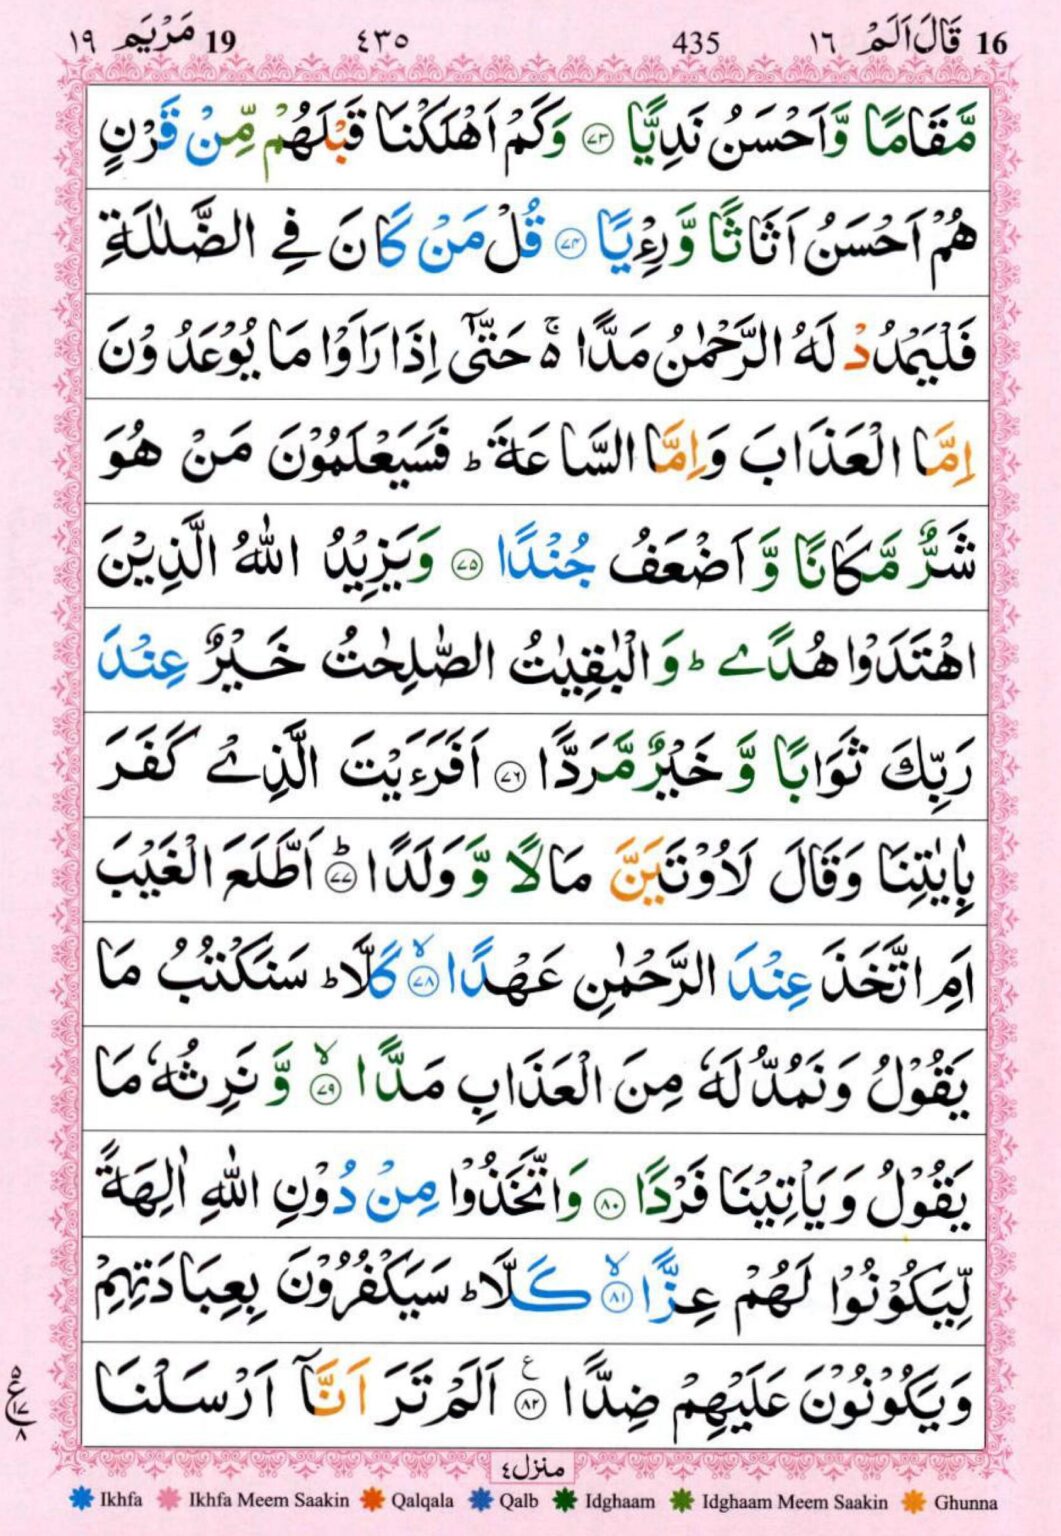 16 قَالَ اَلَمْ ١٦ 435 ٤٣٥ 19 مَرْيَم ١٩
مَّقَامًا وَّاَحْسَنُ نَدِيًّا ﴿٧٣﴾ وَكَمْ اَهْلَكْنَا قَبْلَهُمْ مِّنْ قَرْنٍ
هُمْ اَحْسَنُ اَثَاثًا وَّرِءْيًا ﴿٧٤﴾ قُلْ مَنْ كَانَ فِي الضَّلٰلَةِ
فَلْيَمْدُدْ لَهُ الرَّحْمٰنُ مَدًّا ۚ۬ حَتّٰٓى اِذَا رَاَوْا مَا يُوْعَدُوْنَ
اِمَّا الْعَذَابَ وَاِمَّا السَّاعَةَ ؕ فَسَيَعْلَمُوْنَ مَنْ هُوَ
شَرٌّ مَّكَانًا وَّاَضْعَفُ جُنْدًا ﴿٧٥﴾ وَيَزِيْدُ اللّٰهُ الَّذِيْنَ
اهْتَدَوْا هُدًے ؕ وَالْبٰقِيٰتُ الصّٰلِحٰتُ خَيْرٌ عِنْدَ
رَبِّكَ ثَوَابًا وَّخَيْرٌ مَّرَدًّا ﴿٧٦﴾ اَفَرَءَيْتَ الَّذِےْ كَفَرَ
بِاٰيٰتِنَا وَقَالَ لَاُوْتَيَنَّ مَالًا وَّوَلَدًا ؕ﴿٧٧﴾ اَطَّلَعَ الْغَيْبَ
اَمِ اتَّخَذَ عِنْدَ الرَّحْمٰنِ عَهْدًا ۙ﴿٧٨﴾ كَلَّا ؕ سَنَكْتُبُ مَا
يَقُوْلُ وَنَمُدُّ لَهٗ مِنَ الْعَذَابِ مَدًّا ۙ﴿٧٩﴾ وَّنَرِثُهٗ مَا
يَقُوْلُ وَيَاْتِيْنَا فَرْدًا ﴿٨٠﴾ وَاتَّخَذُوْا مِنْ دُوْنِ اللّٰهِ اٰلِهَةً
لِّيَكُوْنُوْا لَهُمْ عِزًّا ۙ﴿٨١﴾ كَلَّا ؕ سَيَكْفُرُوْنَ بِعِبَادَتِهِمْ
وَيَكُوْنُوْنَ عَلَيْهِمْ ضِدًّا ﴿٨٢﴾ ع اَلَمْ تَرَ اَنَّآ اَرْسَلْنَا
٥
ع١٧
٨
منزل٤
Ikhfa Ikhfa Meem Saakin Qalqala Qalb Idghaam Idghaam Meem Saakin Ghunna